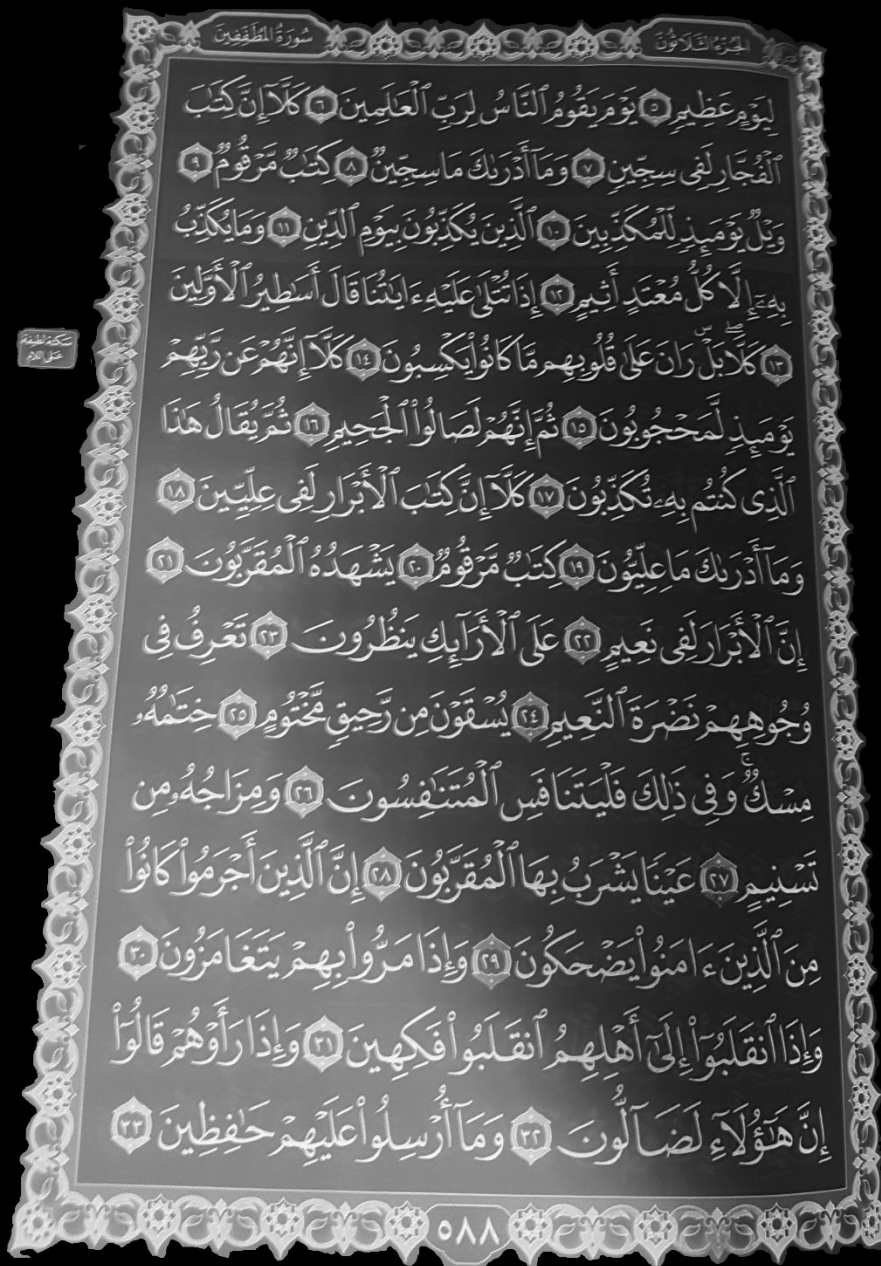 سُورَةُ المُطَفِّفِينَ
الجُزْءُ الثَّلَاثُونَ
لِيَوْمٍ عَظِيمٍ ٥ يَوْمَ يَقُومُ ٱلنَّاسُ لِرَبِّ ٱلْعَٰلَمِينَ ٦ كَلَّآ إِنَّ كِتَٰبَ
ٱلْفُجَّارِ لَفِى سِجِّينٍ ٧ وَمَآ أَدْرَىٰكَ مَا سِجِّينٌ ٨ كِتَٰبٌ مَّرْقُومٌ ٩
وَيْلٌ يَوْمَئِذٍ لِّلْمُكَذِّبِينَ ١٠ ٱلَّذِينَ يُكَذِّبُونَ بِيَوْمِ ٱلدِّينِ ١١ وَمَا يُكَذِّبُ
بِهِۦٓ إِلَّا كُلُّ مُعْتَدٍ أَثِيمٍ ١٢ إِذَا تُتْلَىٰ عَلَيْهِ ءَايَٰتُنَا قَالَ أَسَٰطِيرُ ٱلْأَوَّلِينَ
١٣ كَلَّاۖ بَلْۜ رَانَ عَلَىٰ قُلُوبِهِم مَّا كَانُوا۟ يَكْسِبُونَ ١٤ كَلَّآ إِنَّهُمْ عَن رَّبِّهِمْ
سكتة لطيفة
على اللام
يَوْمَئِذٍ لَّمَحْجُوبُونَ ١٥ ثُمَّ إِنَّهُمْ لَصَالُوا۟ ٱلْجَحِيمِ ١٦ ثُمَّ يُقَالُ هَٰذَا
ٱلَّذِى كُنتُم بِهِۦ تُكَذِّبُونَ ١٧ كَلَّآ إِنَّ كِتَٰبَ ٱلْأَبْرَارِ لَفِى عِلِّيِّينَ ١٨
وَمَآ أَدْرَىٰكَ مَا عِلِّيُّونَ ١٩ كِتَٰبٌ مَّرْقُومٌ ٢٠ يَشْهَدُهُ ٱلْمُقَرَّبُونَ ٢١
إِنَّ ٱلْأَبْرَارَ لَفِى نَعِيمٍ ٢٢ عَلَى ٱلْأَرَآئِكِ يَنظُرُونَ ٢٣ تَعْرِفُ فِى
وُجُوهِهِمْ نَضْرَةَ ٱلنَّعِيمِ ٢٤ يُسْقَوْنَ مِن رَّحِيقٍ مَّخْتُومٍ ٢٥ خِتَٰمُهُۥ
مِسْكٌۚ وَفِى ذَٰلِكَ فَلْيَتَنَافَسِ ٱلْمُتَنَٰفِسُونَ ٢٦ وَمِزَاجُهُۥ مِن
تَسْنِيمٍ ٢٧ عَيْنًا يَشْرَبُ بِهَا ٱلْمُقَرَّبُونَ ٢٨ إِنَّ ٱلَّذِينَ أَجْرَمُوا۟ كَانُوا۟
مِنَ ٱلَّذِينَ ءَامَنُوا۟ يَضْحَكُونَ ٢٩ وَإِذَا مَرُّوا۟ بِهِمْ يَتَغَامَزُونَ ٣٠
وَإِذَا ٱنقَلَبُوٓا۟ إِلَىٰٓ أَهْلِهِمُ ٱنقَلَبُوا۟ فَكِهِينَ ٣١ وَإِذَا رَأَوْهُمْ قَالُوٓا۟
إِنَّ هَٰٓؤُلَآءِ لَضَآلُّونَ ٣٢ وَمَآ أُرْسِلُوا۟ عَلَيْهِمْ حَٰفِظِينَ ٣٣
٥٨٨